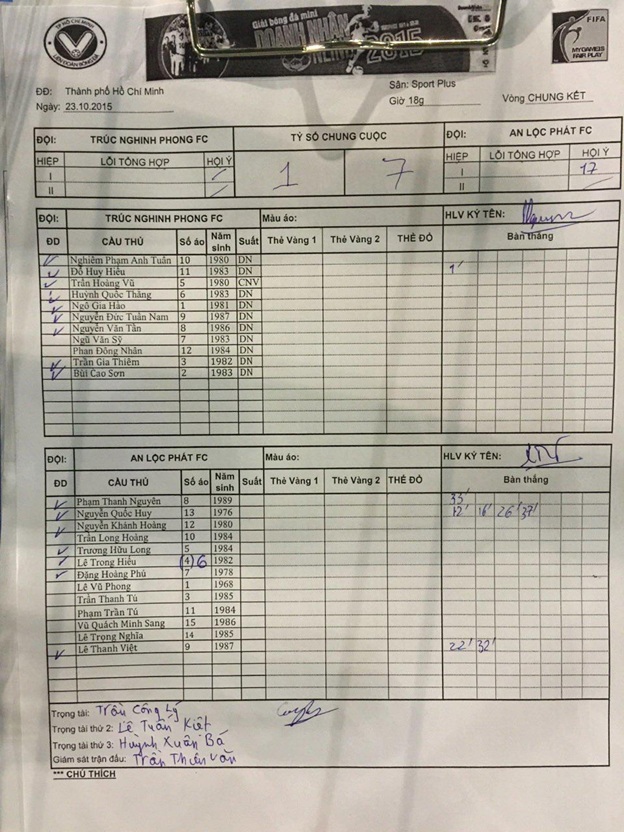 TP HỒ CHÍ MINH
LIÊN ĐOÀN BÓNG ĐÁ
Giải bóng đá mini
DOANH NHÂN
2015
FIFA
MY GAME IS
FAIR PLAY
ĐĐ: Thành phố Hồ Chí Minh
Sân: Sport Plus
Ngày: 23.10.2015
Giờ 18g
Vòng CHUNG KẾT
ĐỘI: TRÚC NGHINH PHONG FC TỶ SỐ CHUNG CUỘC ĐỘI: AN LỘC PHÁT FC
HIỆP LỖI TỔNG HỢP HỘI Ý 1 7 HIỆP LỖI TỔNG HỢP HỘI Ý
I I 17
II II
ĐỘI: TRÚC NGHINH PHONG FC Màu áo: HLV KÝ TÊN:
ĐD CẦU THỦ Số áo Năm sinh Suất Thẻ Vàng 1 Thẻ Vàng 2 THẺ ĐỎ Bàn thắng
Nghiêm Phạm Anh Tuấn 10 1980 DN
Đỗ Huy Hiếu 11 1983 DN 1'
Trần Hoàng Vũ 5 1980 CNV
Huỳnh Quốc Thắng 6 1983 DN
Ngô Gia Hảo 1 1981 DN
Nguyễn Đức Tuấn Nam 9 1987 DN
Nguyễn Văn Tân 8 1986 DN
Ngũ Văn Sỹ 7 1983 DN
Phan Đông Nhân 12 1984 DN
Trần Gia Thiêm 3 1982 DN
Bùi Cao Sơn 2 1983 DN
ĐỘI: AN LỘC PHÁT FC Màu áo: HLV KÝ TÊN:
ĐD CẦU THỦ Số áo Năm sinh Suất Thẻ Vàng 1 Thẻ Vàng 2 THẺ ĐỎ Bàn thắng
Phạm Thanh Nguyên 8 1989 35'
Nguyễn Quốc Huy 13 1976 12' 16' 26' 37'
Nguyễn Khánh Hoàng 12 1980
Trần Long Hoàng 10 1984
Trương Hữu Long 5 1984
Lê Trong Hiếu (4) 6 1982
Đặng Hoàng Phú 7 1978
Lê Vũ Phong 1 1968
Trần Thanh Tú 3 1985
Phạm Trần Tú 11 1984
Vũ Quách Minh Sang 15 1986
Lê Trọng Nghĩa 14 1985
Lê Thanh Việt 9 1987 22' 32'
Trọng tài: Trần Công Lý
Trọng tài thứ 2: Lê Tuấn Kiệt
Trọng tài thứ 3: Huỳnh Xuân Bá
Giám sát trận đấu: Trần Thiên Văn
*** CHÚ THÍCH